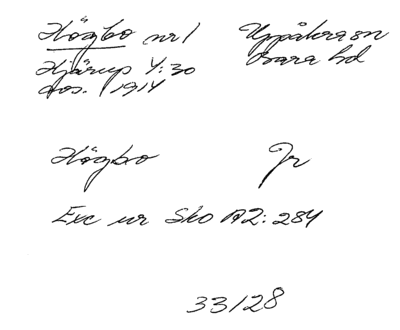 Högbo nr 1 Uppåkra sn
Hjärup 4:30 Bara hd
fos. 1914
Högbo Jr
Exc ur Sko A2: 284
33/28